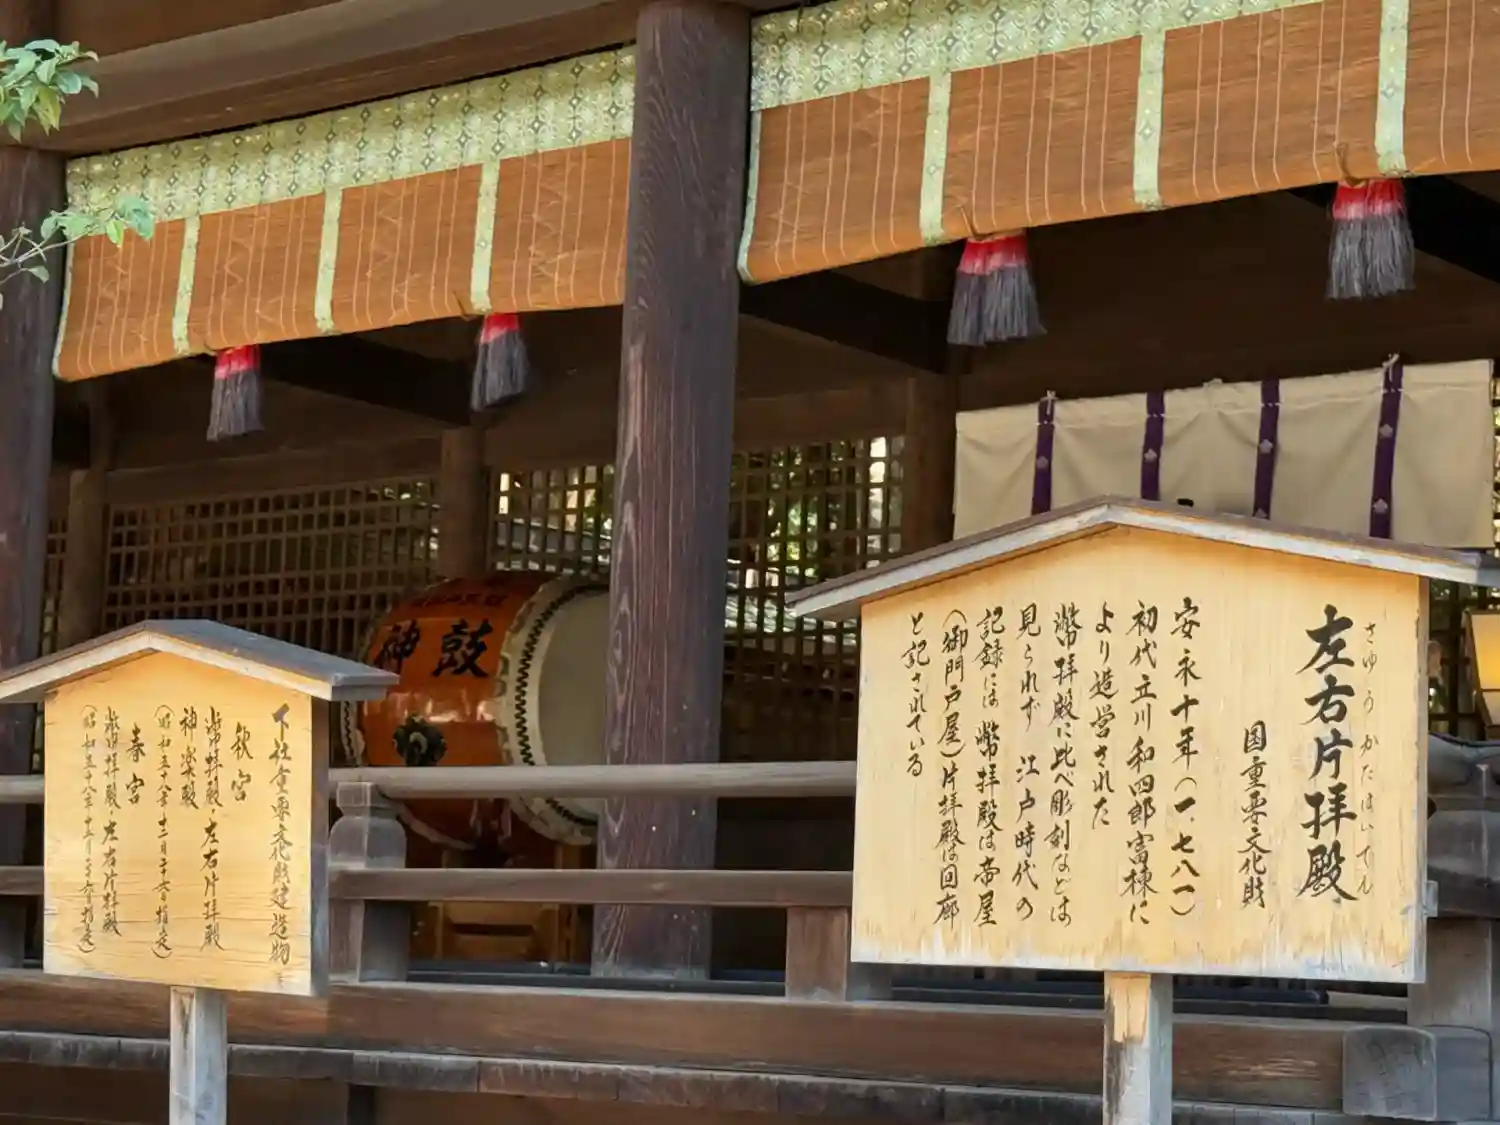 左右片拝殿
さゆうかたはいでん
国重要文化財
安永十年(一、七八一)
初代立川和四郎富棟に
より造営された
幣拝殿に比べ彫刻などは
見られず 江戸時代の
記録には 幣拝殿は帝屋
(御門戸屋)片拝殿は回廊
と記されている
神鼓
下社重要文化財建造物
秋宮
幣拝殿・左右片拝殿
神楽殿
(昭和五十八年十二月二十六日指定)
春宮
幣拝殿・左右片拝殿
(昭和五十八年十二月二十六日指定)